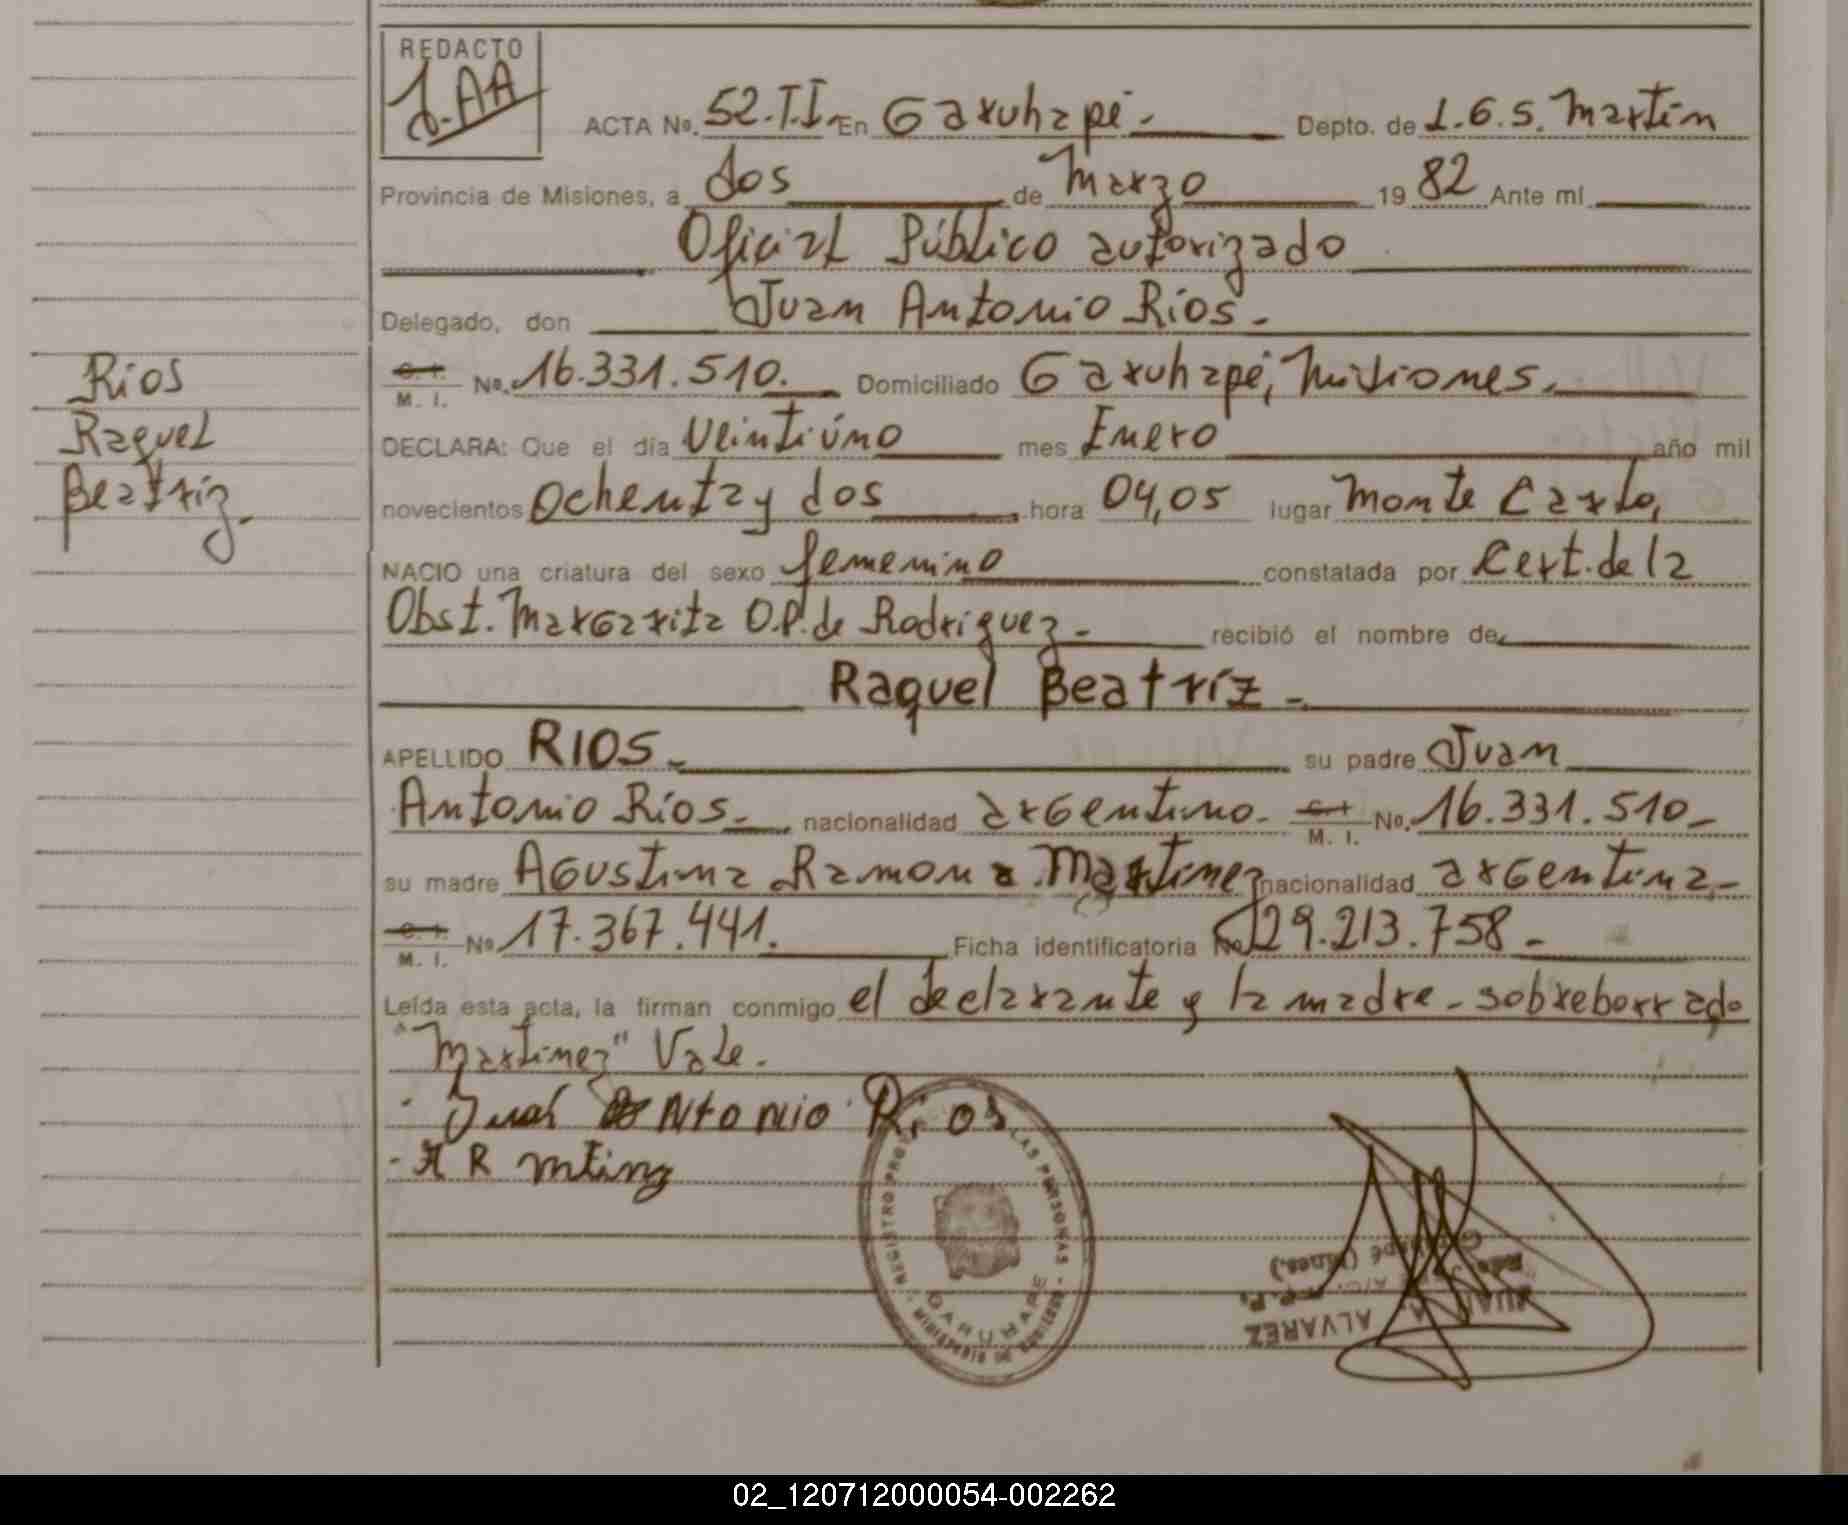 REDACTO
J.AA
ACTA Nº. 52.T.I. En Garuhapé.- Depto. de L.G.S. Martín
Provincia de Misiones, a dos de Marzo 19 82 Ante mí
Oficial Público autorizado
Delegado, don Juan Antonio Ríos.-
C. I. M. I. Nº. 16.331.510. Domiciliado Garuhapé, Misiones.
DECLARA: Que el día Veintiúno mes Enero año mil
novecientos Ochenta y dos hora 04,05 lugar Monte Carlo,
NACIO una criatura del sexo femenino constatada por Cert. de la
Obst. Margarita O.P. de Rodriguez.- recibió el nombre de
Raquel Beatríz.-
APELLIDO RIOS.- su padre Juan
Antonio Ríos.- nacionalidad argentino. C. I. M. I. Nº. 16.331.510.-
su madre Agustina Ramona Martinez nacionalidad argentina.-
C. I. M. I. Nº 17.367.441. Ficha identificatoria Nº 29.213.758.-
Leída esta acta, la firman conmigo el declarante y la madre.- sobreborrado
"Martinez" Vale.
Juan Antonio Rios
A R Mtinz
Rios
Raquel
Beatriz.
REGISTRO PROV. DE LAS PERSONAS
GARUHAPE
MINISTERIO DE GOBIERNO
Garuhapé (Mnes.)
JUAN A. ALVAREZ
02_120712000054-002262